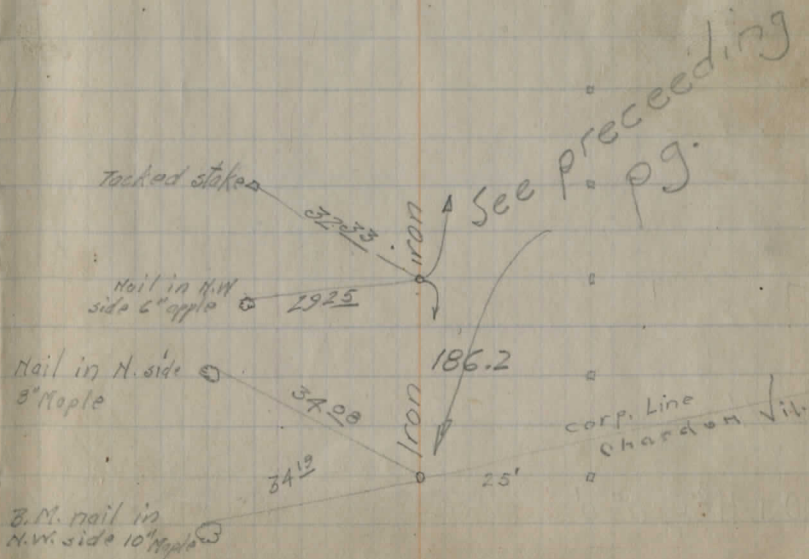 See preceeding
pg.
Tacked stake
32 33
Iron
Nail in N.W
side 6" apple
29 25
186.2
Nail in N. side
8" Maple
34 08
Iron
corp. Line
Chardon Vil.
34 19
25'
B.M. nail in
N.W. side 10" Maple